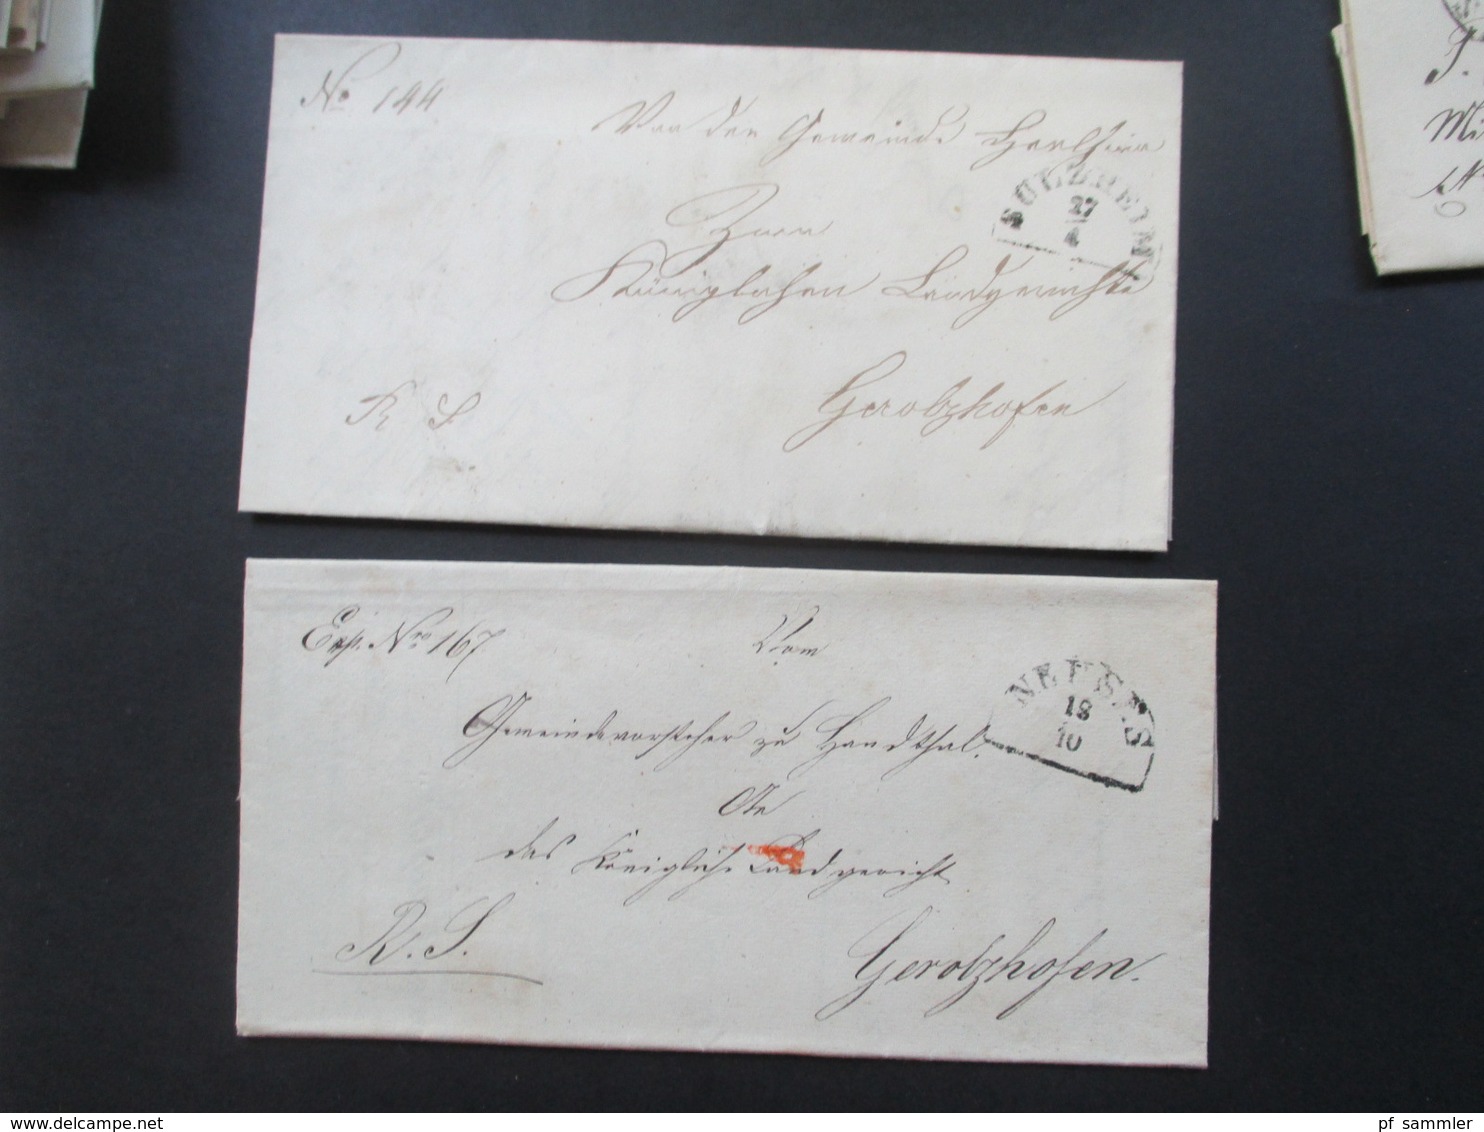 No 144
Von der Gemeinde
SULZHEIM
27
4
Zum
Königlichen Landgericht
Gerolzhofen
R S
Exp. Nro 167
Vom
NEUSES
18
10
Gemeindevorsteher zu Handthal.
An
das Königliche Landgericht
R. S.
Gerolzhofen.
www.delcampe.net
pf_sammler